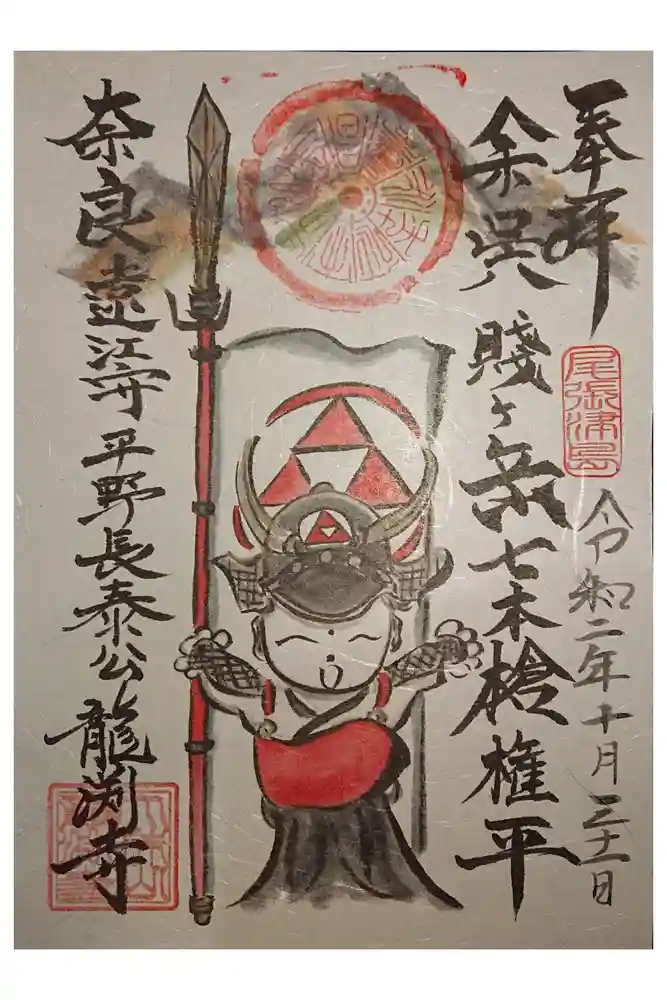 奉拝
尾張津島
令和二年十月三十一日
余呉
賤ヶ岳七本槍権平
奈良遠江守平野長泰公
龍渕寺